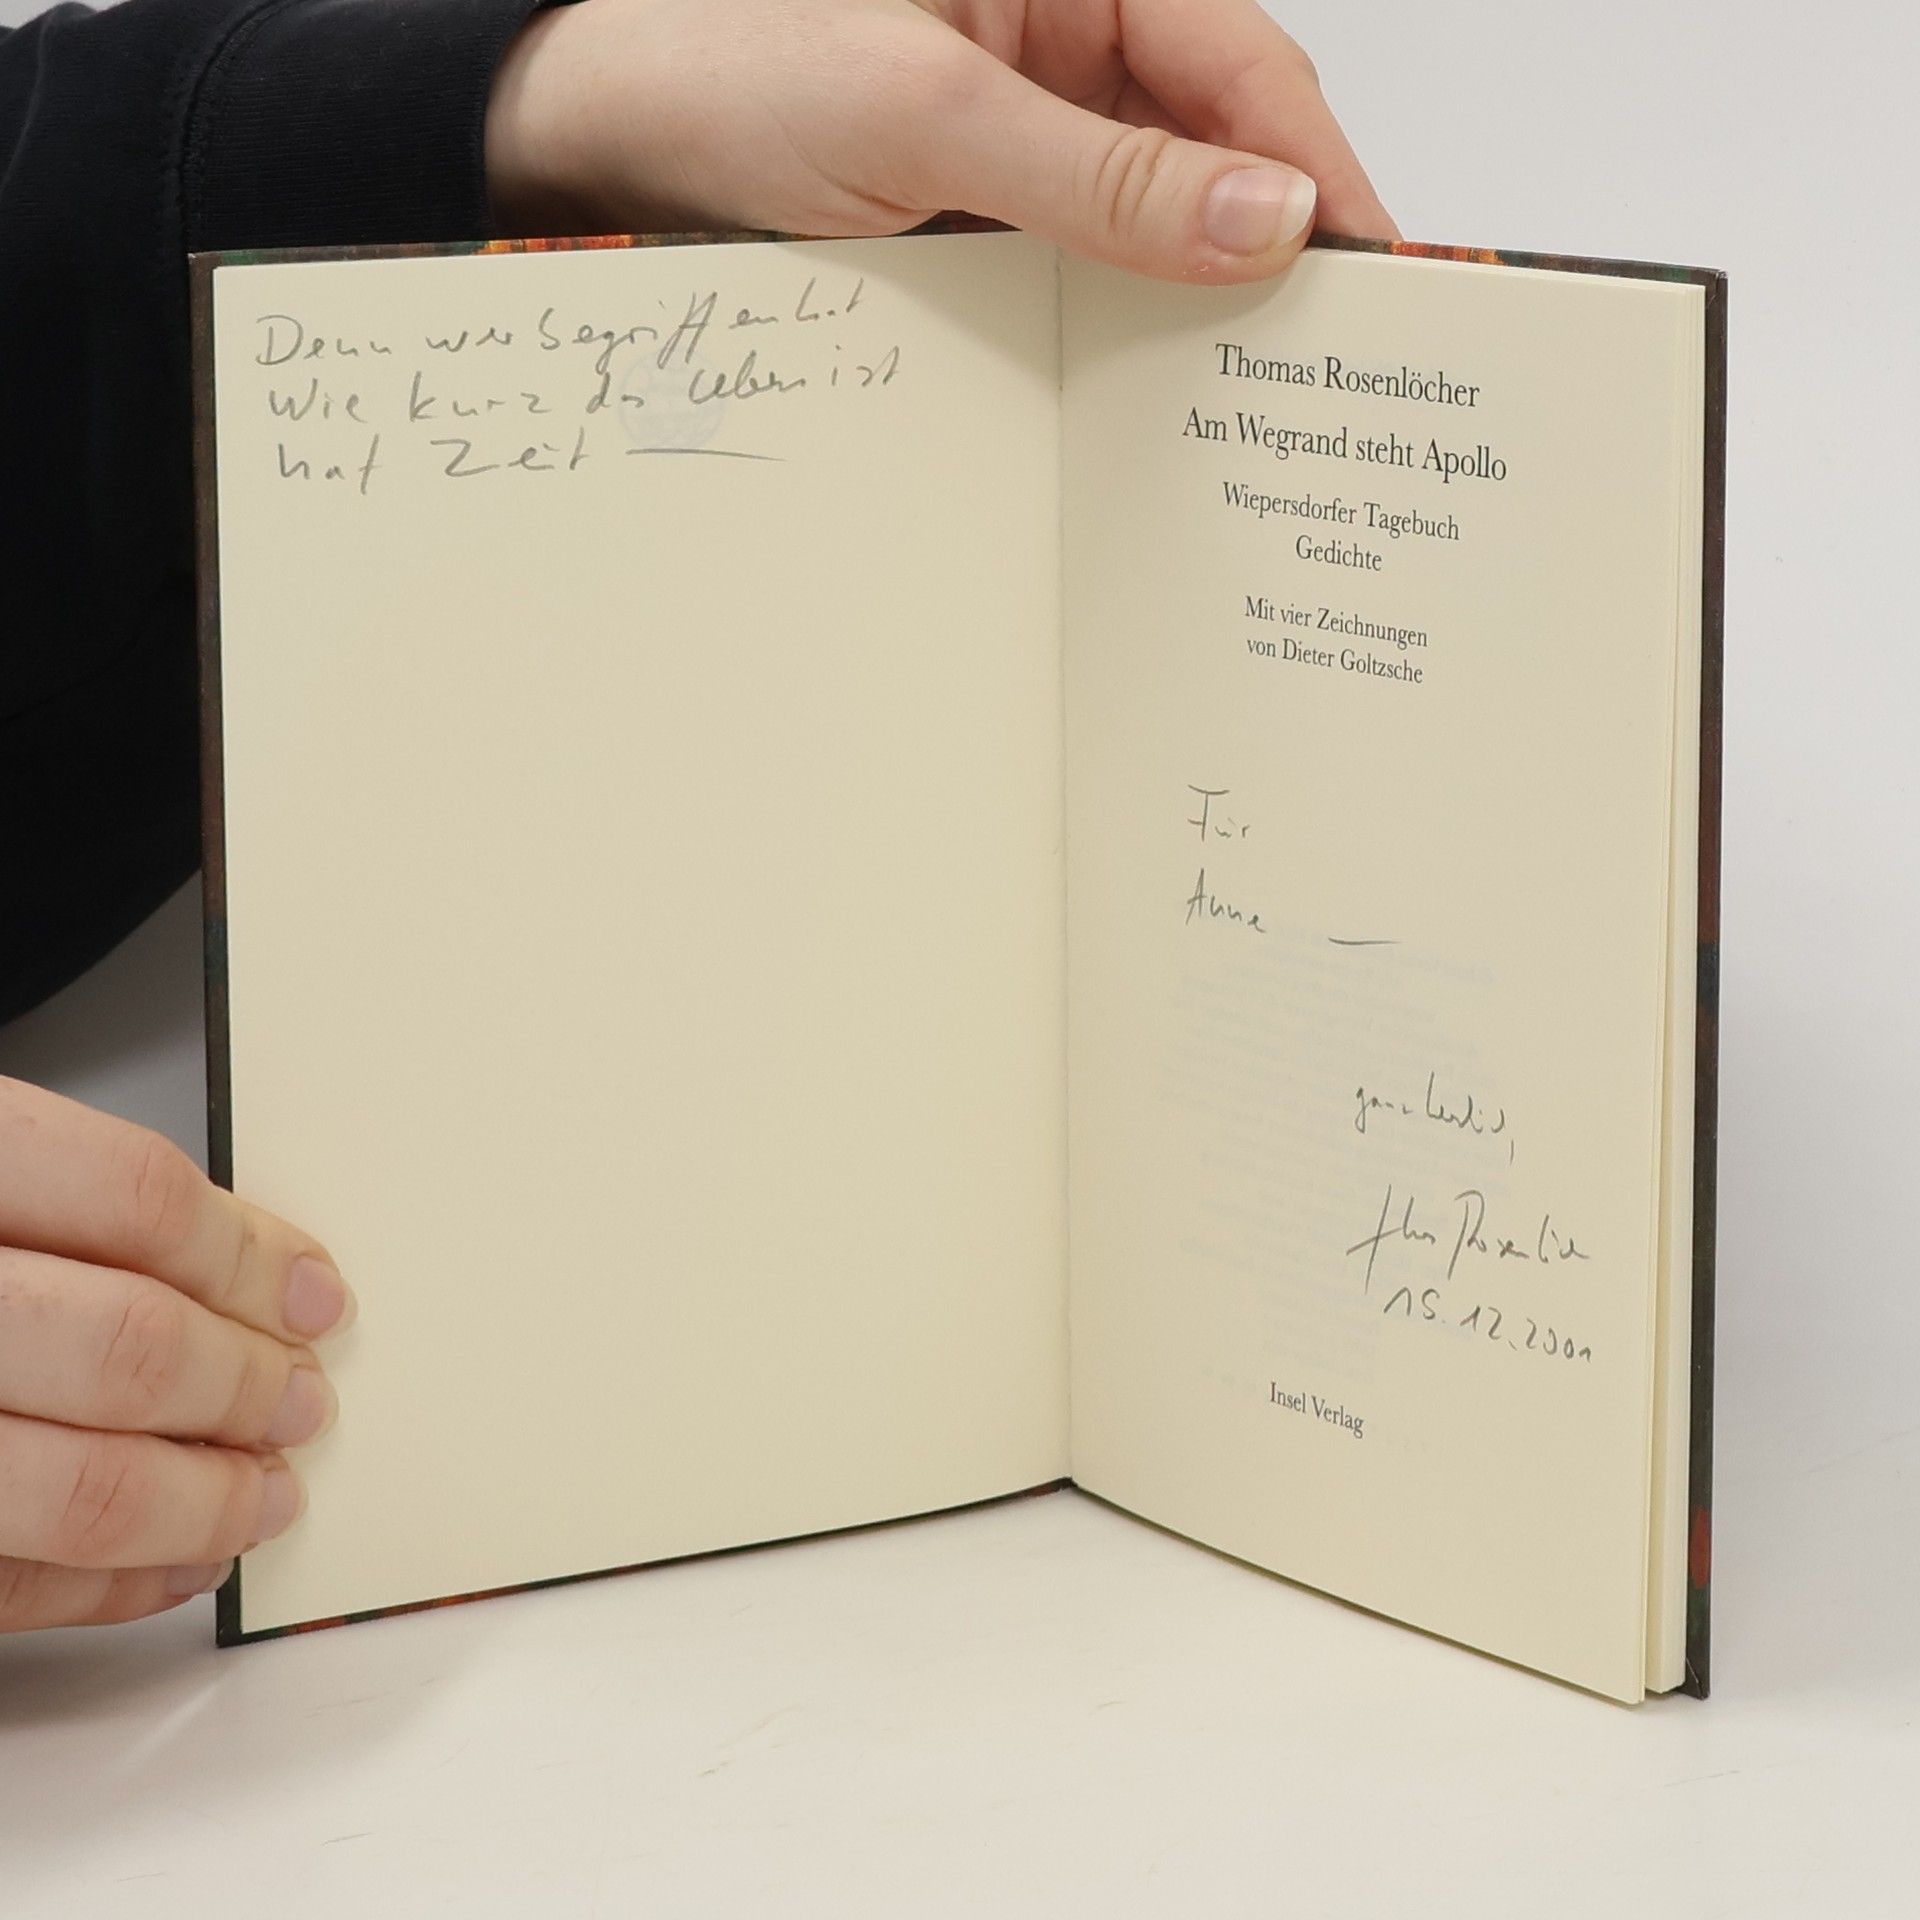 Denn wer begriffen hat
Wie kurz das Leben ist
hat Zeit —
Thomas Rosenlöcher
Am Wegrand steht Apollo
Wiepersdorfer Tagebuch
Gedichte
Mit vier Zeichnungen
von Dieter Goltzsche
Für
Anne —
ganz herzlich,
Thomas Rosenlöcher
15.12.2001
Insel Verlag